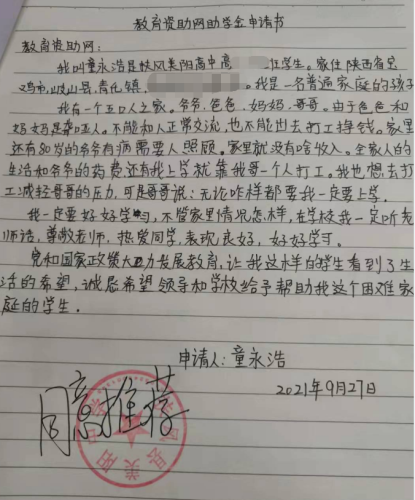 教育资助网助学金申请书
教育资助网：
我叫童永浩是扶风美阳高中高 在学生。家住陕西省宝
鸡市，岐山县，青化镇， 。我是一名普通家庭的孩子
我有一个五口人之家。爷爷，爸爸，妈妈，哥哥。由于爸爸和
妈妈是聋哑人。不能和人正常交流，也不能出去打工挣钱。家里
还有80岁的爷爷有病需要人照顾。家里就没有啥收入。全家人的
生活和爷爷的药费还有我上学就靠我哥一个人打工。我也想去打
工减轻哥哥的压力，可是哥哥说：无论咋样都要我一定要上学。
我一定要好好学习，不管家里情况怎样，在学校我一定听老
师话，尊敬老师，热爱同学，表现良好，好好学习。
党和国家政策大力发展教育，让我这样的学生看到了生
活的希望，诚恳希望领导和学校给予帮助我这个困难家
庭的学生。
申请人：童永浩
2021年9月27日
同意推荐